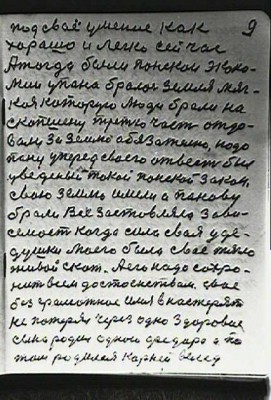 9
под своё умение как
хорашо и легко сейчас
А тогда были понской эконо-
мии у пана бралас земля мяг-
кая которую люди брали на
скопшину третю часть отдо-
вали за землю обязательно, надо
пану уперед своего отвести был
уведеный токой понской закон,
свою землю имели а панову
брали. Все застовляла зави-
семость когда сила своя у де-
душки моего было своё тягло
живой скот. А его надо сохро-
нит всем достоенствам, свае
без грамотное имя
не потерял через одно здоровие
сына родил одного
том родился Карней